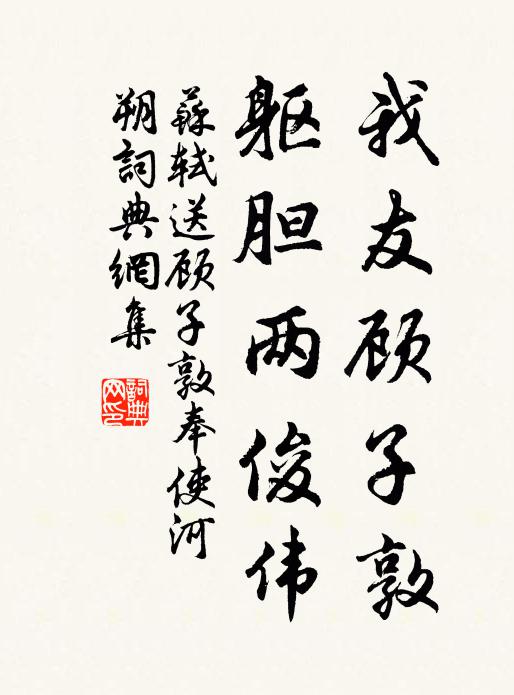 我友顾子敦
躯胆两俊伟
蘇轼送顾子敦奉使河
朔詞典網集
詞典
网印